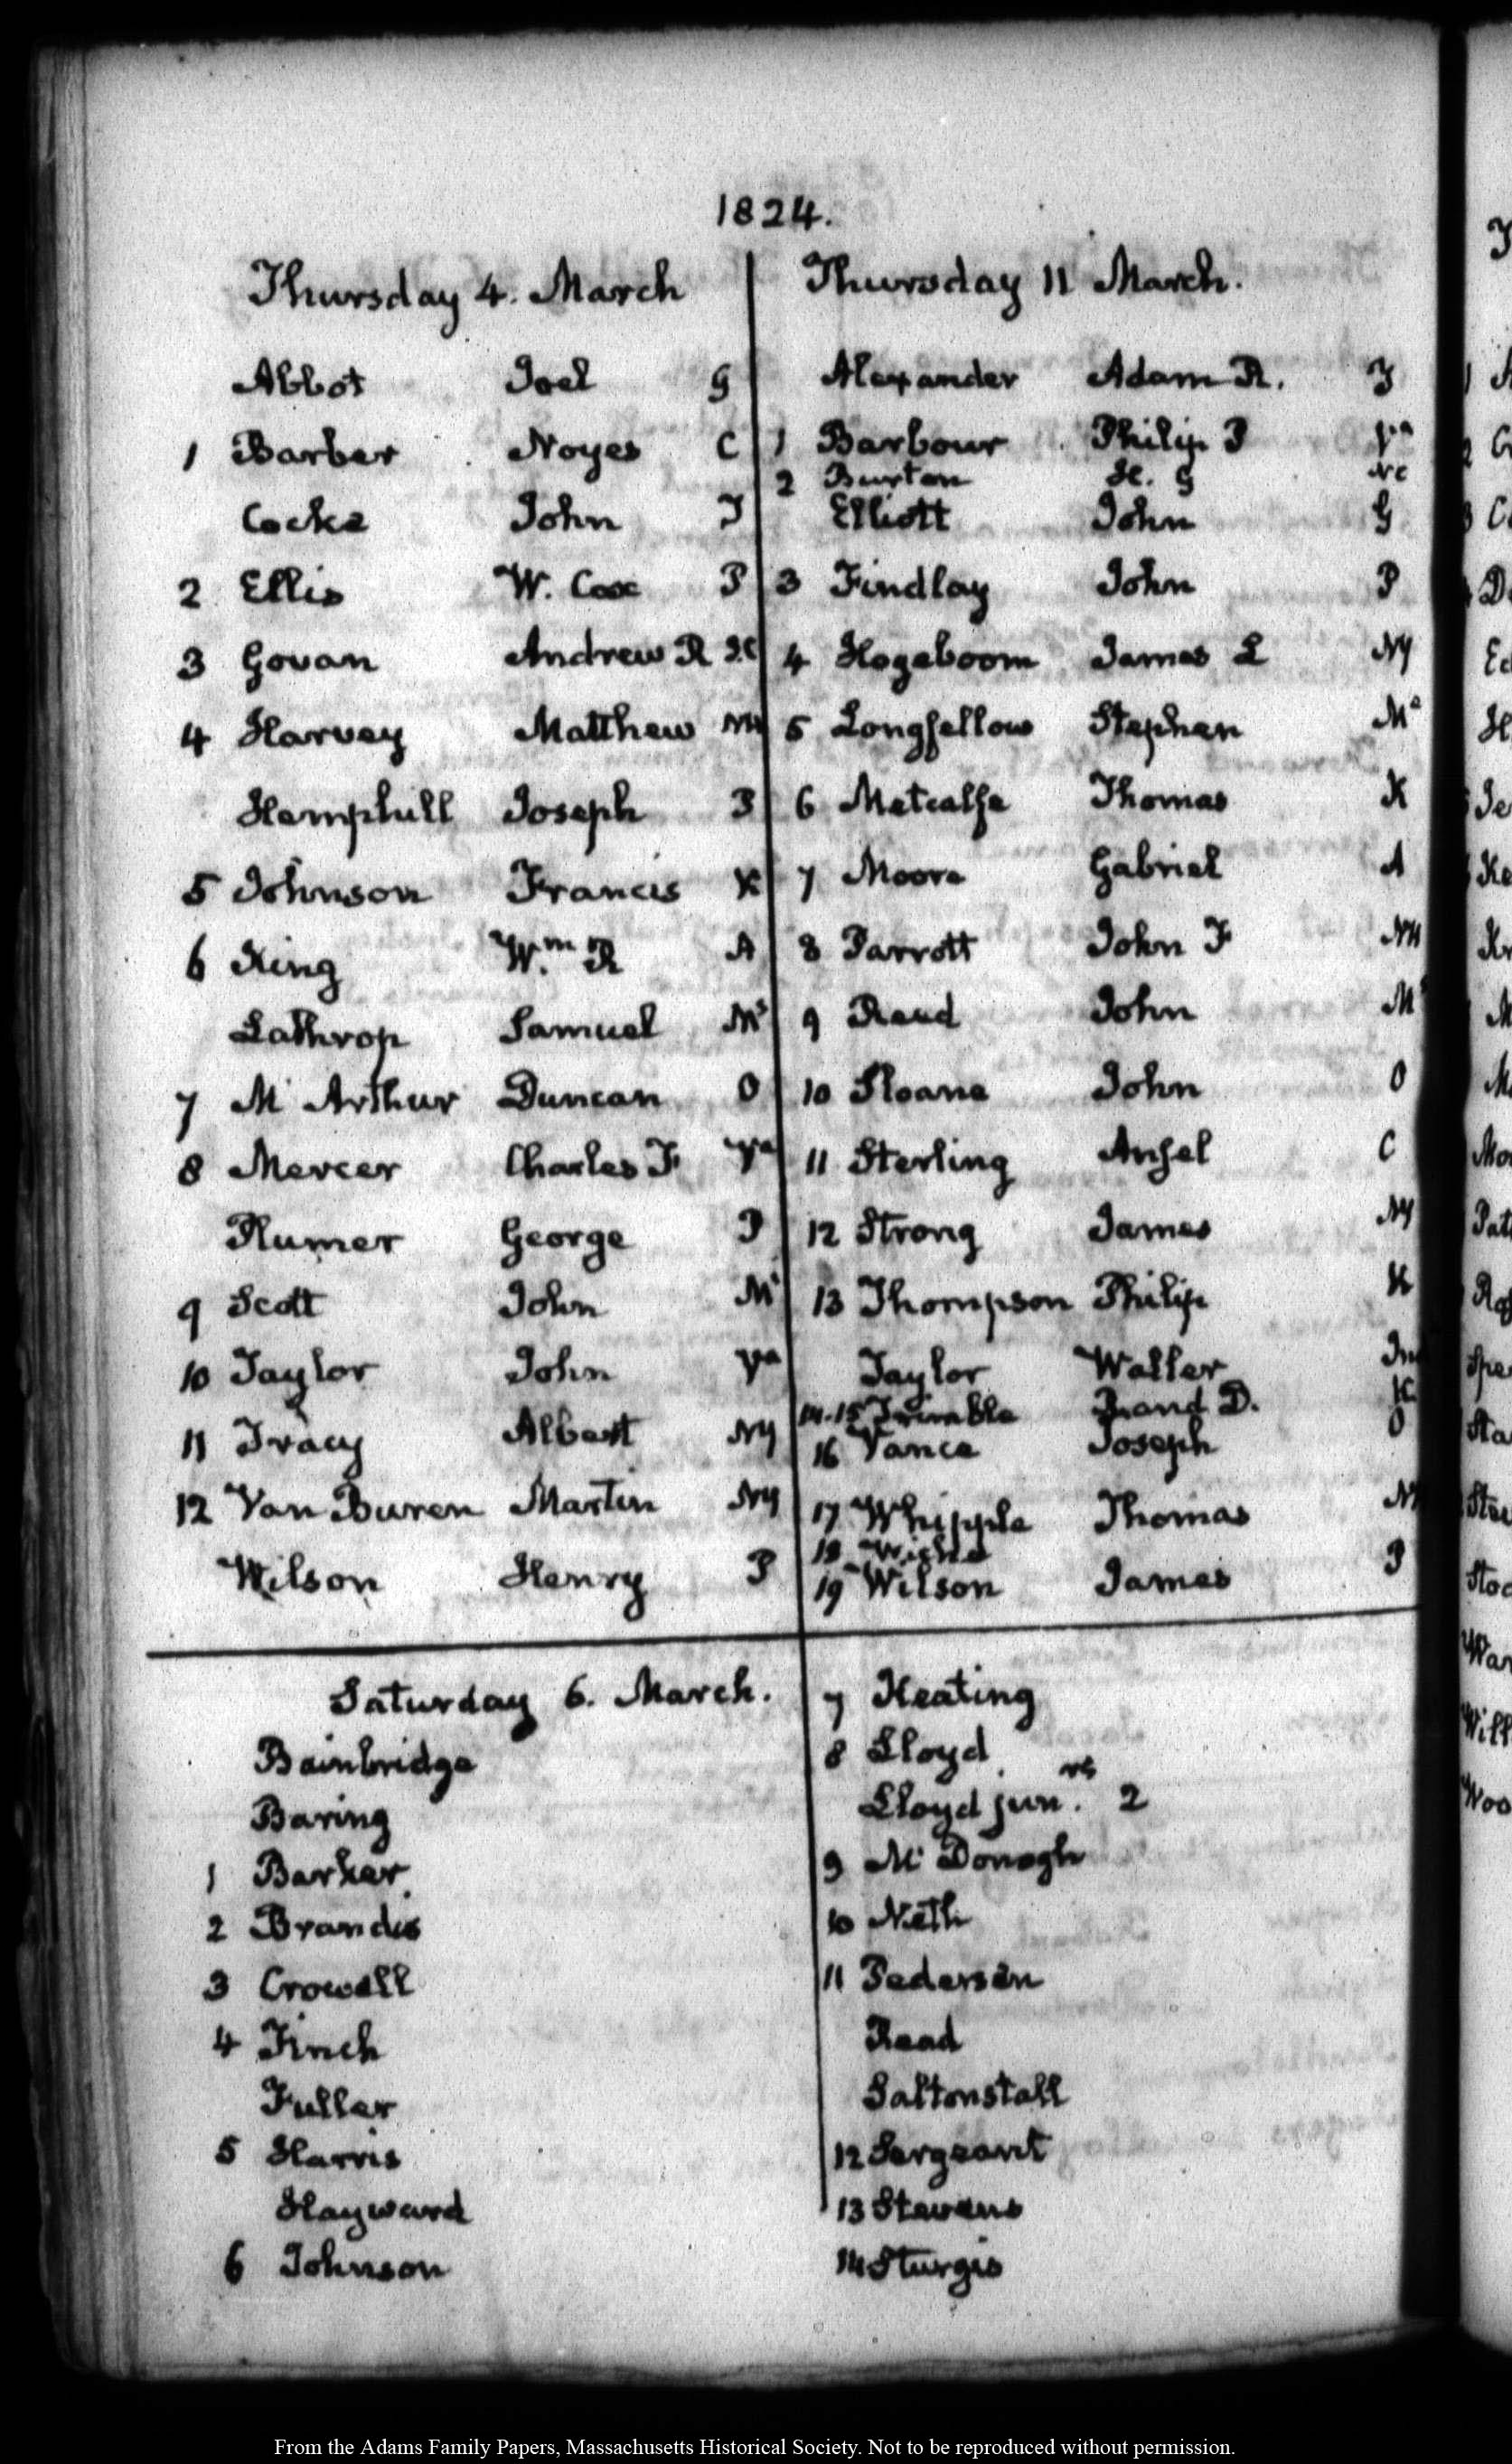 1824.
Thursday 4. March
Abbot Joel G
1 Barber Noyes C
Cocke John T
2 Ellis W. Cox P
3 Govan Andrew R SC
4 Harvey Matthew NH
Hemphill Joseph P
5 Johnson Francis K
6 King Wm. R A
Lathrop Samuel Ms
7 Mc Arthur Duncan O
8 Mercer Charles F Va
Plumer George P
9 Scott John Mi
10 Taylor John Va
11 Tracy Albert NY
12 Van Buren Martin NY
Wilson Henry P
Thursday 11 March.
Alexander Adam R. T
1 Barbour Philip P Va
2 Burton H. G NC
Elliott John G
3 Findlay John P
4 Hogeboom James L NY
5 Longfellow Stephen Me
6 Metcalfe Thomas K
7 Moore Gabriel A
8 Parrott John F NH
9 Reed John M
10 Sloane John O
11 Sterling Ansel C
12 Strong James NY
13 Thompson Philip K
Taylor Waller In
14.15 Trimble and D. K
16 Vance Joseph O
17 Whipple Thomas N
18
19 Wilson James P
Saturday 6. March.
Bainbridge
Baring
1 Barker
2 Brandis
3 Crowell
4 Finch
Fuller
5 Harris
Hayward
6 Johnson
7 Keating
8 Lloyd
Lloyd junrs. 2
9 Mc Donogh
10 Neth
11 Pedersen
Read
Saltonstall
12 Sergeant
13 Stevens
14 Sturgis
From the Adams Family Papers, Massachusetts Historical Society. Not to be reproduced without permission.